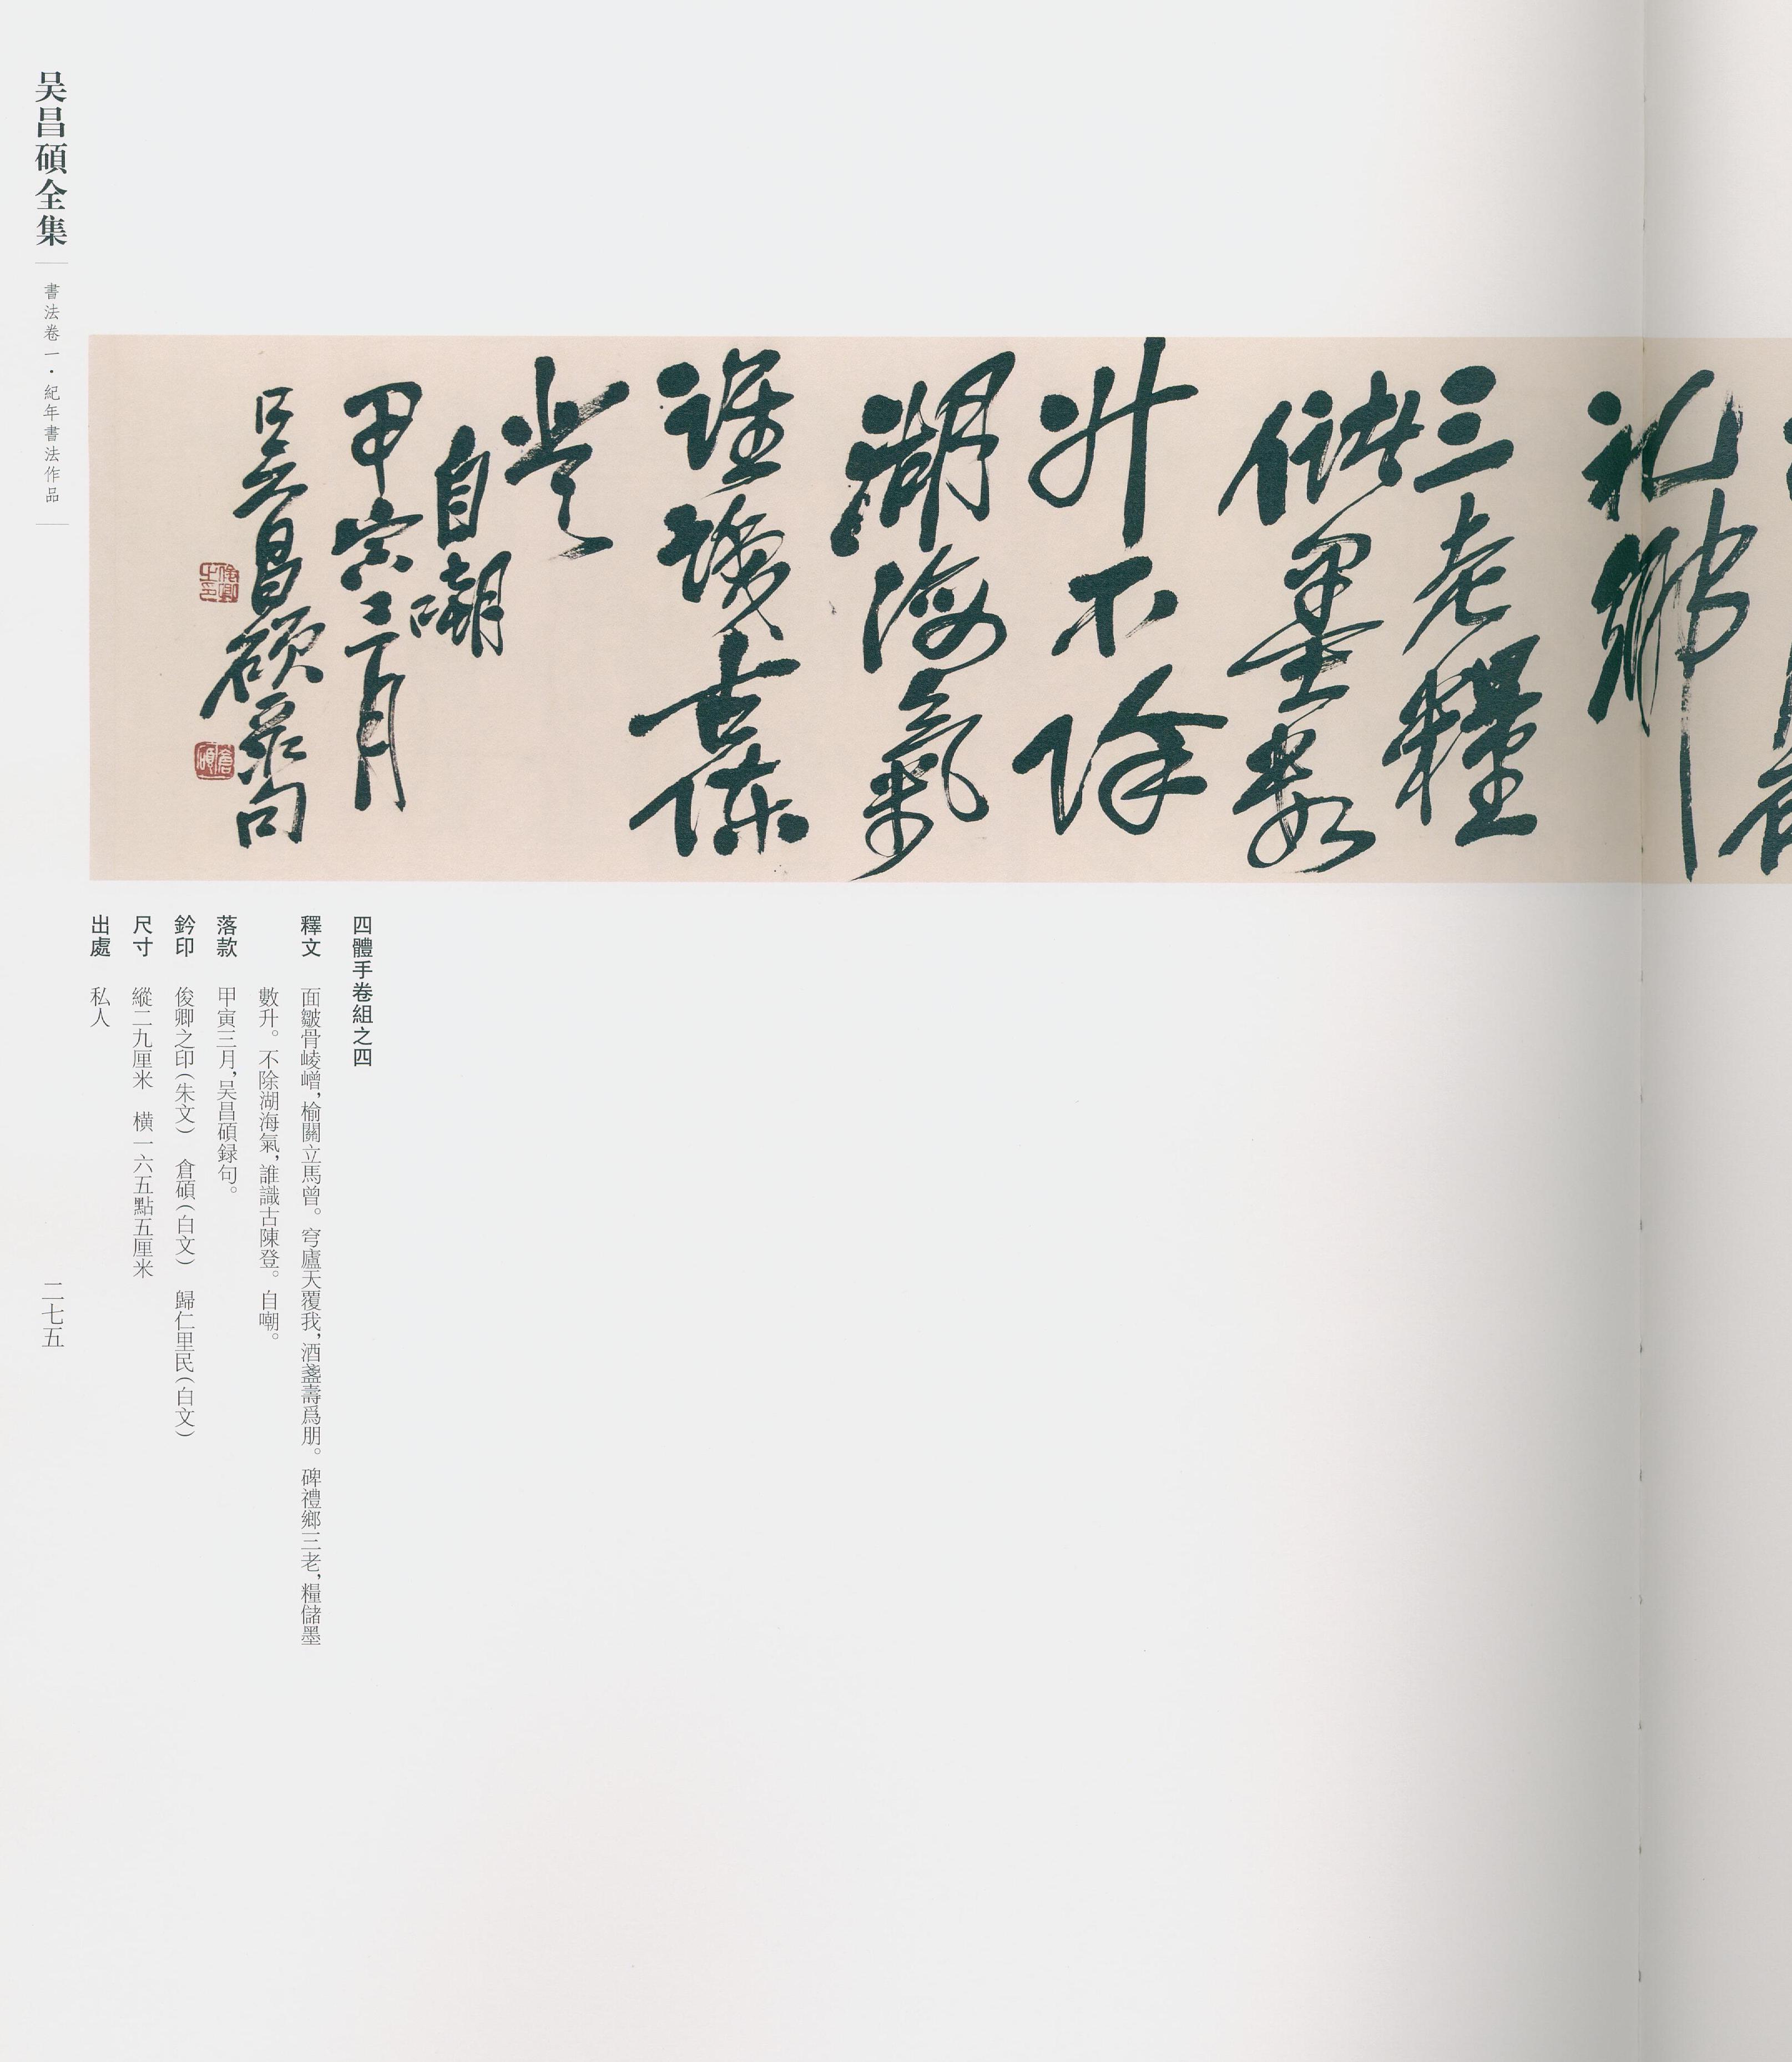 礼鄉
三老糧
儲墨數
升不除
湖海氣
誰識古陳
登
自嘲
甲寅三月
吳昌碩录句
俊卿之印
倉碩
四體手卷組之四
釋文　面皺骨崚嶒，榆關立馬曾。穹廬天覆我，酒盞壽爲朋。碑禮鄉三老，糧儲墨
數升。不除湖海氣，誰識古陳登。自嘲。
落款　甲寅三月，吴昌碩録句。
鈐印　俊卿之印（朱文）　倉碩（白文）　歸仁里民（白文）
尺寸　縱二九厘米　橫一六五點五厘米
出處　私人
吴昌碩全集
書法卷一·紀年書法作品
二七五